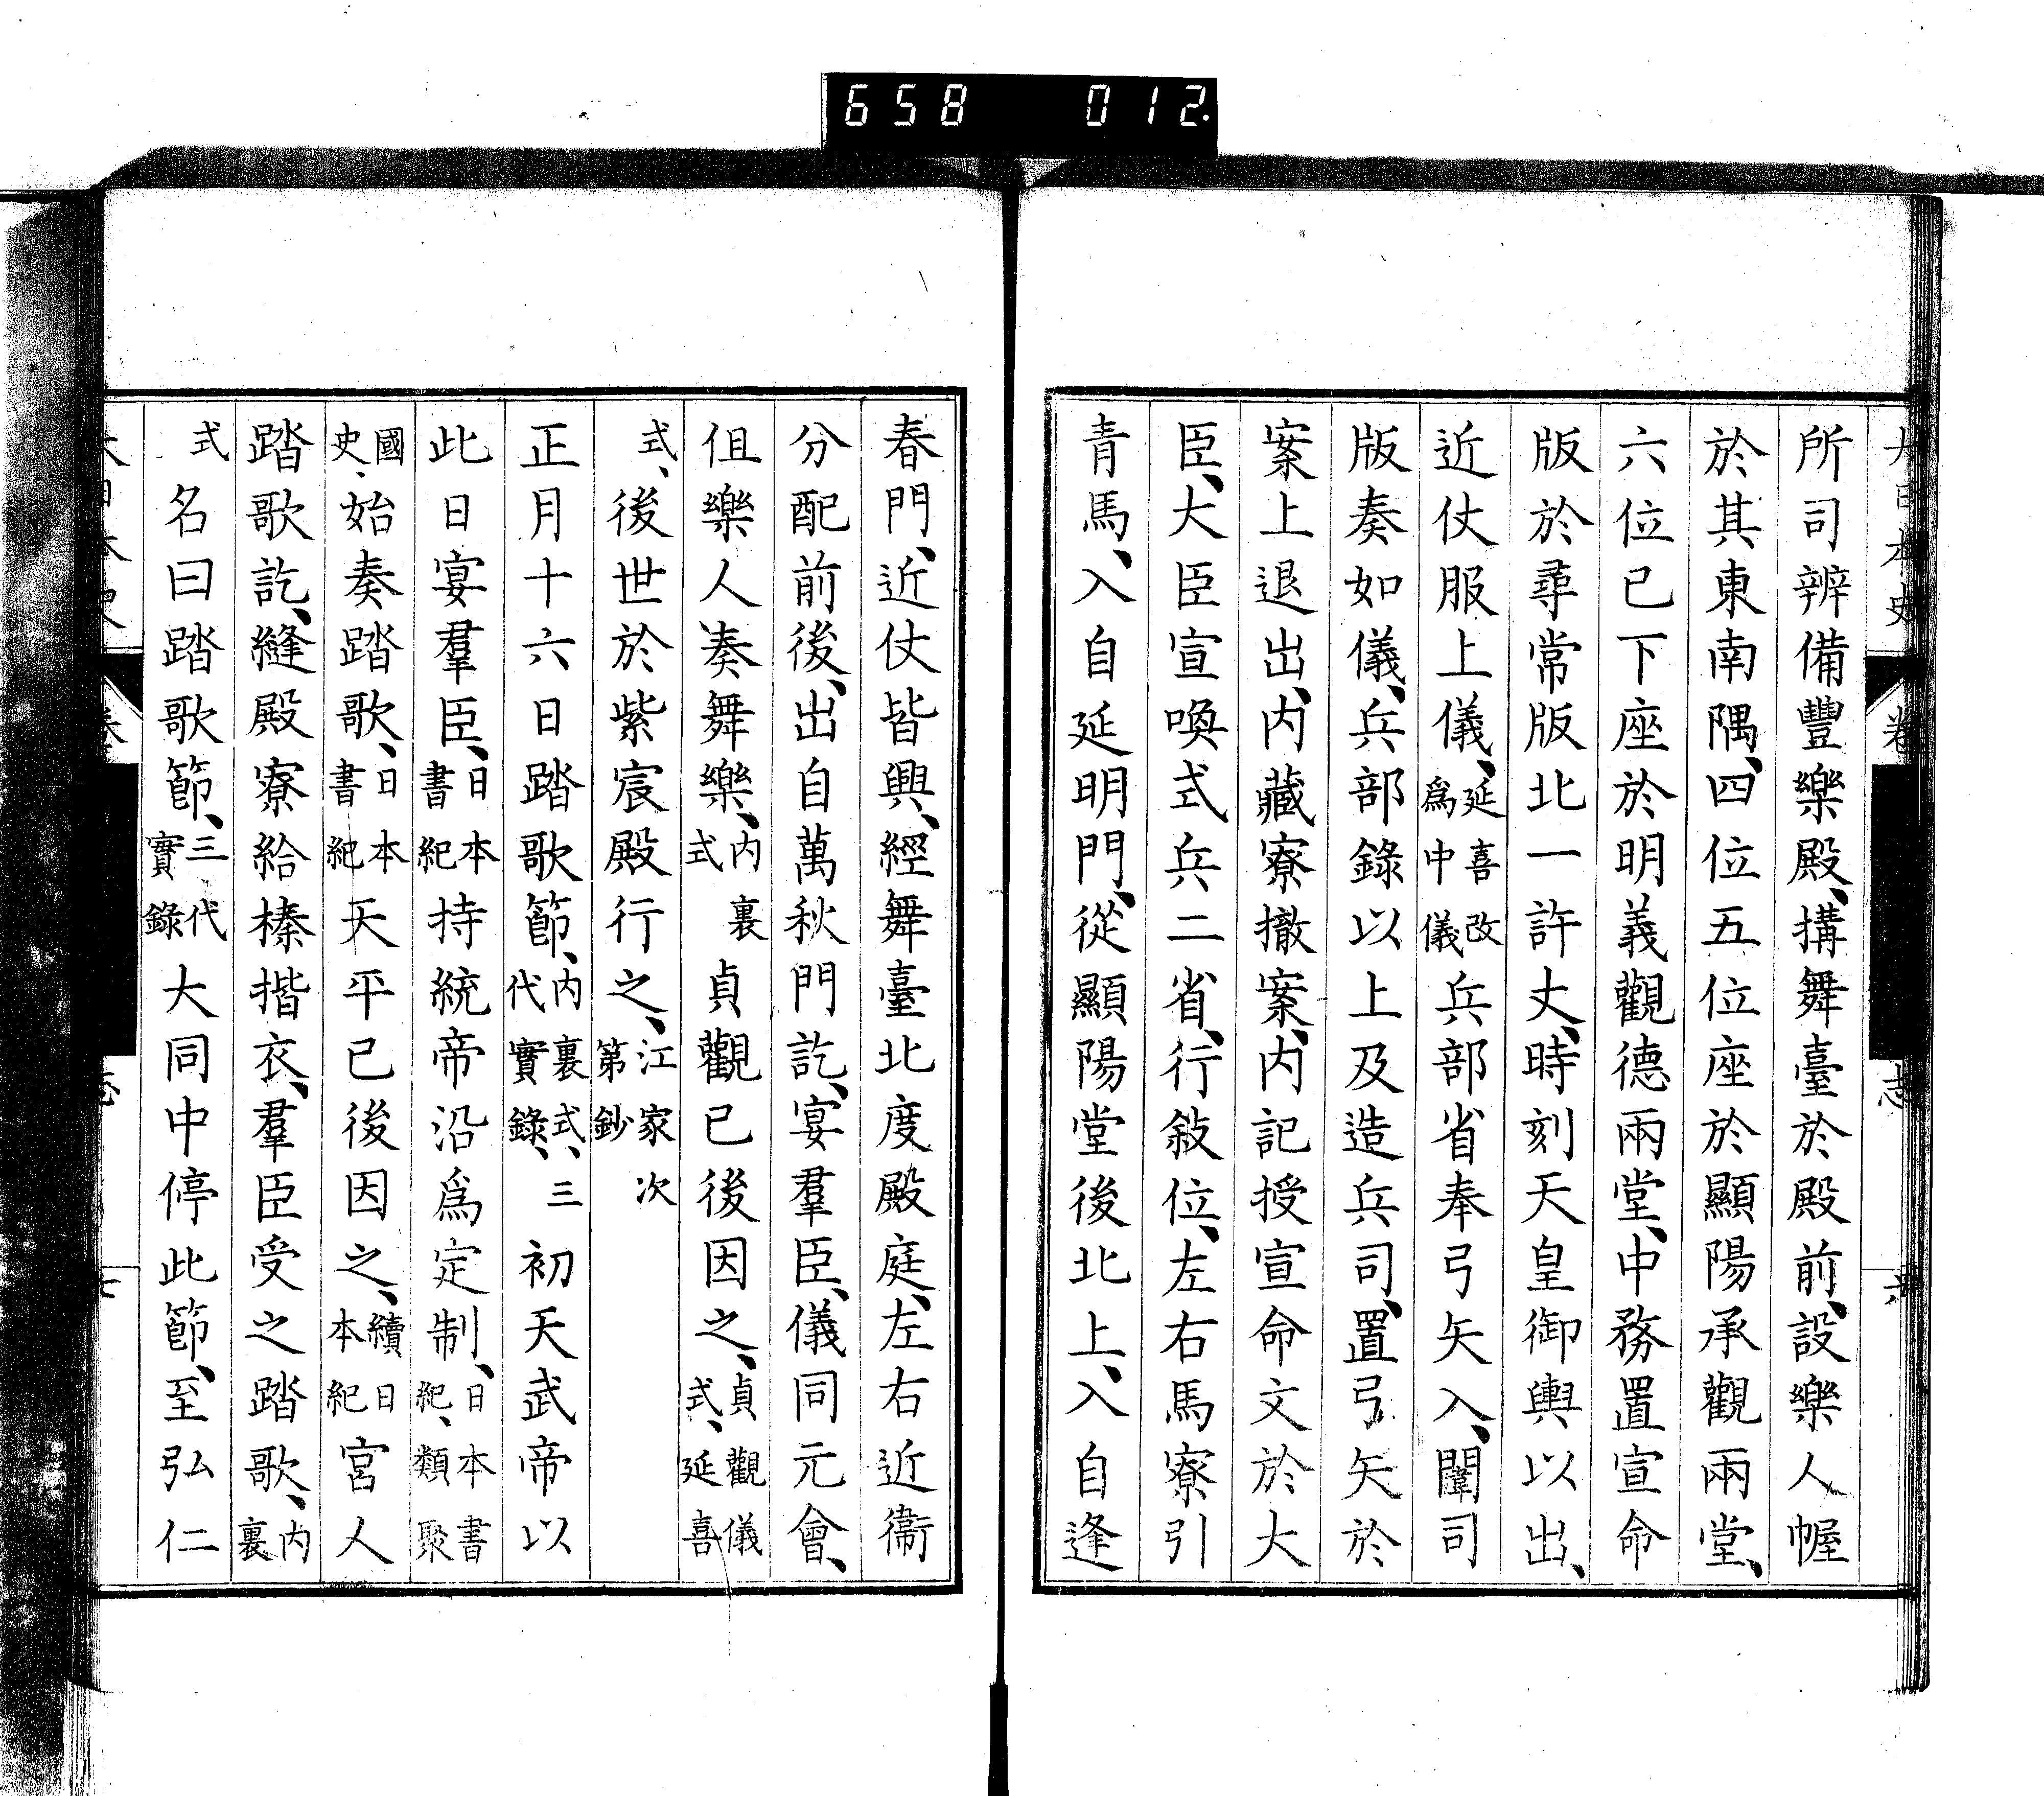 658 012.
大日本史 卷 志 六
所司辨備豐樂殿、搆舞臺於殿前、設樂人幄
於其東南隅、四位五位座於顯陽承觀兩堂、
六位已下座於明義觀德兩堂、中務置宣命
版於尋常版北一許丈、時刻天皇御輿以出、
近仗服上儀、延喜改爲中儀兵部省奉弓矢入、闈司
版奏如儀、兵部錄以上及造兵司、置弓矢於
案上退出、内藏寮撤案、内記授宣命文於大
臣、大臣宣喚式兵二省、行敍位、左右馬寮引
青馬、入自延明門、從顯陽堂後北上、入自逢
春門、近仗皆興、經舞臺北度殿庭、左右近衞
分配前後、出自萬秋門訖、宴羣臣、儀同元會、
但樂人奏舞樂、内裏式貞觀已後因之、貞觀儀式、延喜
式、後世於紫宸殿行之、江家次第鈔
正月十六日踏歌節、内裏式、三代實錄、初天武帝以
此日宴羣臣、日本書紀持統帝沿爲定制、日本書紀、類聚
國史、始奏踏歌、日本書紀天平已後因之、續日本紀宮人
踏歌訖、縫殿寮給榛揩衣、羣臣受之踏歌、内裏
式名曰踏歌節、三代實錄大同中停此節、至弘仁
大日本史 卷 志 七